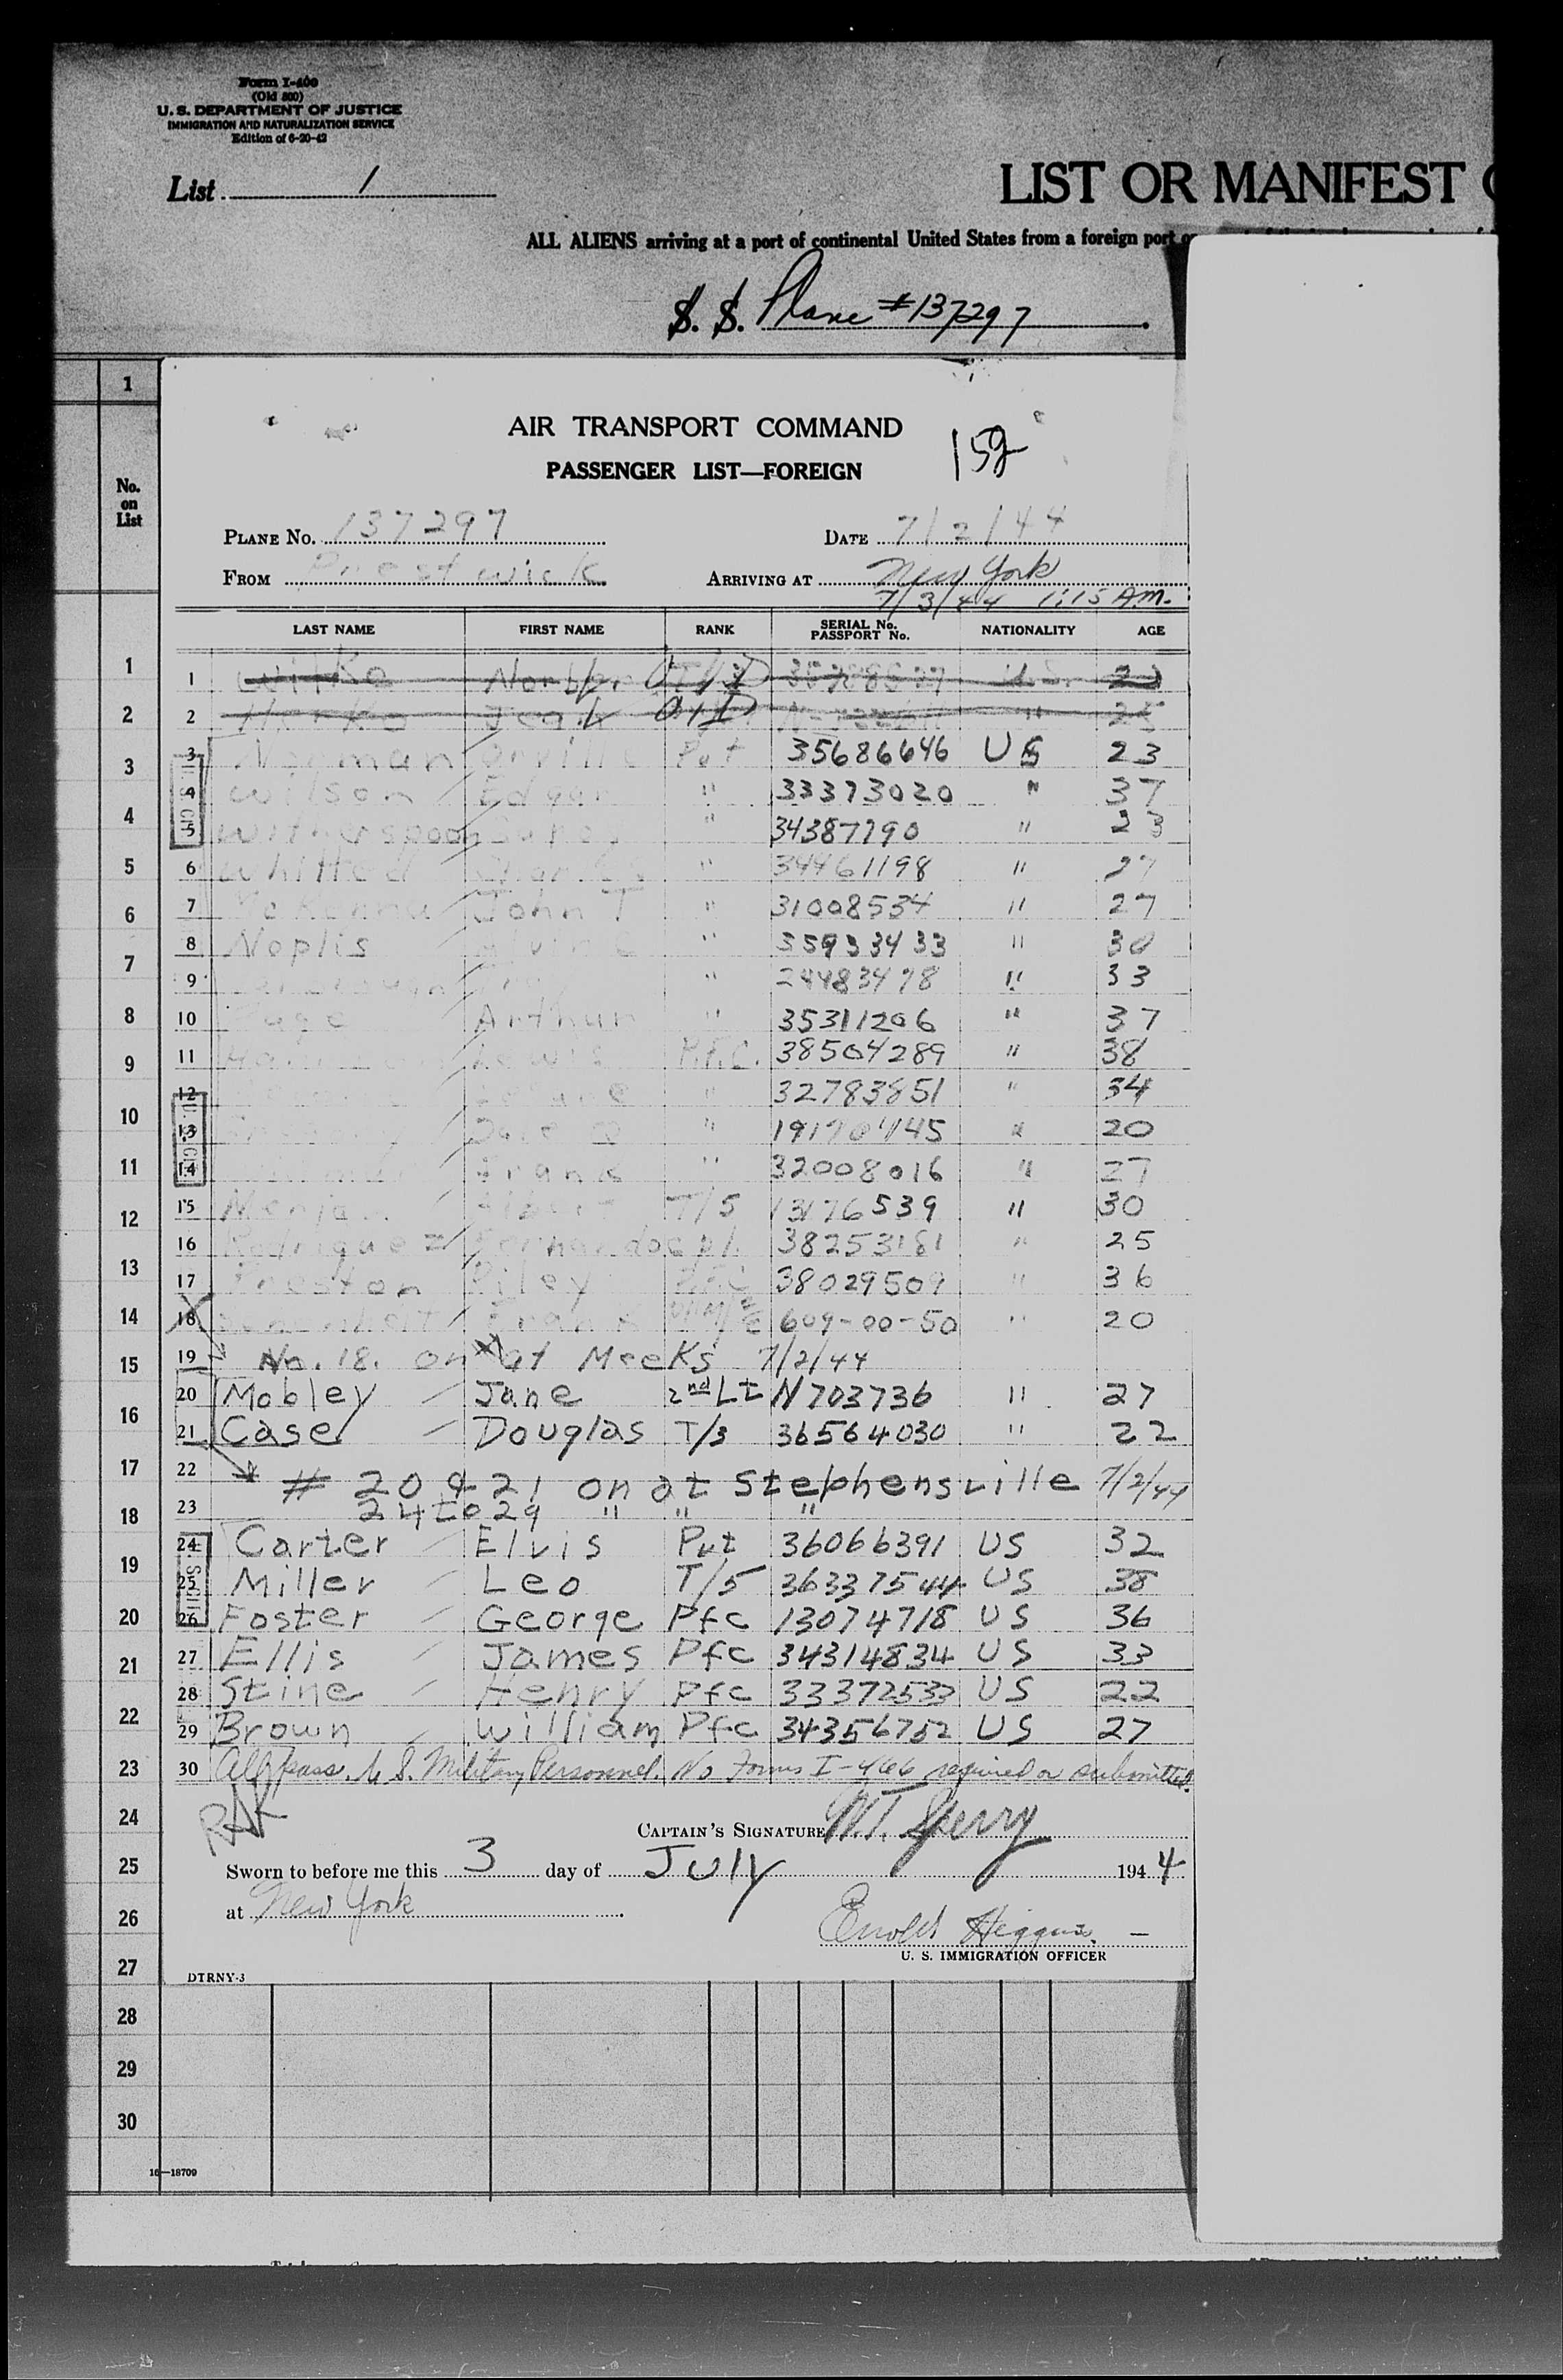 Form I-400
(Old 500)
U. S. DEPARTMENT OF JUSTICE
IMMIGRATION AND NATURALIZATION SERVICE
Edition of 6-20-42
List 1
LIST OR MANIFEST
ALL ALIENS arriving at a port of continental United States from a foreign port
S. S. Plane #137297
1
No.
on
List
AIR TRANSPORT COMMAND
PASSENGER LIST—FOREIGN
PLANE No. 137297 DATE 7/2/44
FROM Prestwick ARRIVING AT New York
7/3/44 1:15 A.M.
LAST NAME FIRST NAME RANK SERIAL No. PASSPORT No. NATIONALITY AGE
1 Witke
2 25
3 Norman Orville Pvt 35686646 US 23
4 Wilson Edgar " 33373020 " 37
5 Witherspoon " 34387790 " 23
6 Whitted Charles " 34461198 " 27
7 McKenna John T " 31008534 " 27
8 Noplis Alvin C " 35933433 " 30
9 " 24483478 " 33
10 Page Arthur " 35311206 " 37
11 Lewis P.F.C. 38504289 " 38
12 " 32783851 " 34
13 " " 20
14 Frank " 32008016 " 27
15 Albert T/5 13176539 " 30
16 Rodriguez Fernando Cpl. 38253181 " 25
17 Preston Riley P.F.C. 38029509 " 36
18 Frank 609-00-50 " 20
19 No. 18. on at Meeks 7/2/44
20 Mobley Jane 2nd Lt N703736 " 27
21 Case Douglas T/3 36564030 " 22
22 # 20 & 21 on at Stephensville 7/2/44
23 24 to 29 " " "
24 Carter Elvis Pvt 36066391 US 32
25 Miller Leo T/5 36337544 US 38
26 Foster George Pfc 13074718 US 36
27 Ellis James Pfc 34314834 US 33
28 Stine Henry Pfc 33372533 US 22
29 Brown William Pfc 34356752 US 27
30 All pass. U. S. Military Personnel. No Forms I-466 required or submitted.
RAK
CAPTAIN'S SIGNATURE W.T. Sperry
Sworn to before me this 3 day of July 1944
at New York
Higgins
U. S. IMMIGRATION OFFICER
DTRNY-3
1
2
3
4
5
6
7
8
9
10
11
12
13
14
15
16
17
18
19
20
21
22
23
24
25
26
27
28
29
30
16—18709